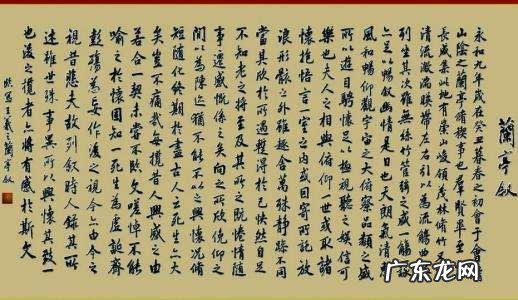 蘭亭叙
永和九年歲在癸丑暮春之初會于會
山陰之蘭亭脩禊事也羣賢畢至
長咸集此地有崇山峻領茂林脩竹
清流激湍映帶左右引以為流觴曲
列坐其次雖無絲竹管絃之盛一觴一詠
亦足以暢叙幽情是日也天朗氣清
風和暢仰觀宇宙之大俯察品類之盛
所以遊目騁懷足以極視聽之娛信可
樂也夫人之相與俯仰一世或取諸
懷抱悟言一室之內或因寄所託放
浪形骸之外雖趣舍萬殊靜躁不同
當其欣於所遇蹔得於己怏然自足
不知老之將至及其所之既惓情隨
事遷感慨係之矣向之所欣俛仰之
閒以為陳迹猶不能不以之興懷況脩
短隨化終期於盡古人云死生亦大
矣豈不痛哉每攬昔人興感之由
若合一契未嘗不臨文嗟悼不能
喻之於懷固知一死生為虛誕齊
彭殤為妄作後之視今亦由今之
視昔悲夫故列叙時人錄其所
述雖世殊事異所以興懷其致一
也後之攬者亦將有感於斯文
臨寫王羲之蘭亭叙
广东龙网